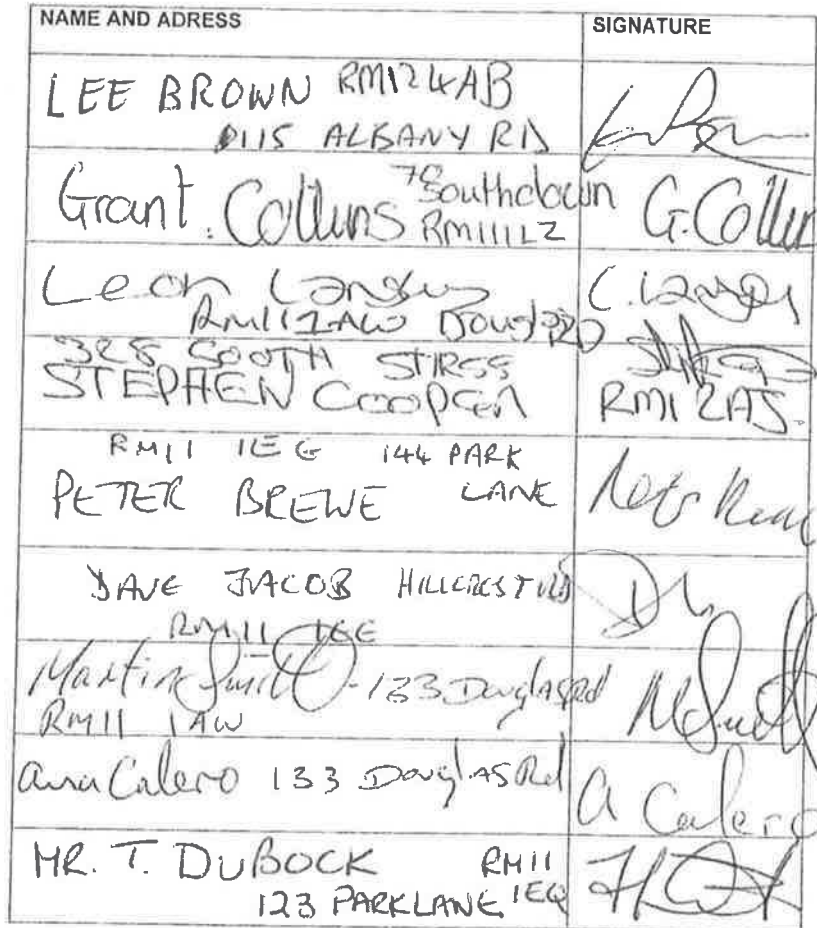 NAME AND ADRESS
SIGNATURE
LEE BROWN RM12 4AB
115 ALBANY RD
Grant Collins 70 Southdown
RM11 1LZ
G. Collins
Leon
RM11 1AW Douglas RD
328 SOUTH
STEPHEN COOPER
RM1 2AJ.
RM11 1EG 144 PARK
PETER BREWE LANE
DAVE JACOB HILLCREST RD
RM11 1EE
Martin Smith - 133 Douglas Rd
RM11 1AW
M Smith
ana Calero 133 Douglas Rd
a Calero
MR. T. DUBOCK RM11
123 PARKLANE 1EQ